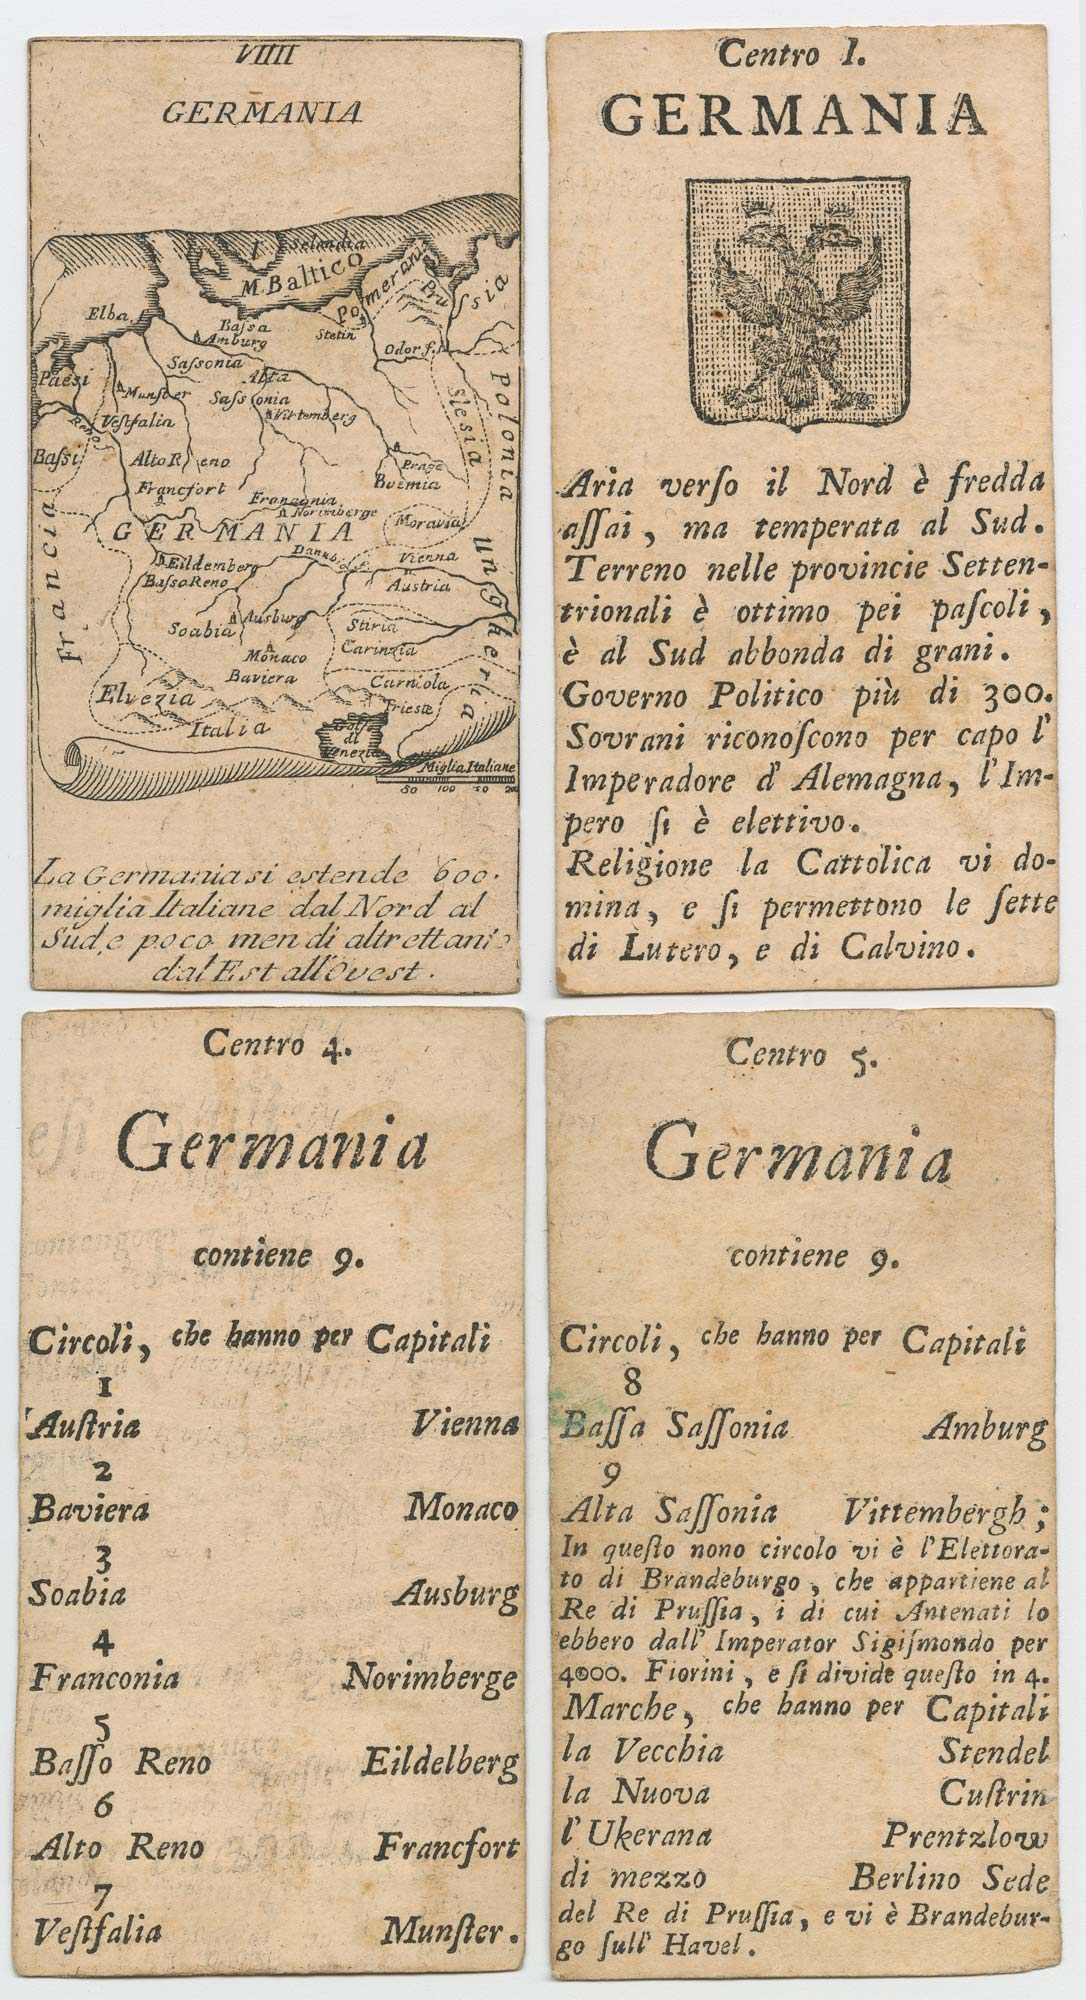 VIIII
GERMANIA
Selandia
M. Baltico
Pomerania
Prussia
Elba
Bassa
Amburg
Stetin
Odor f.
Sassonia
Alta
Sassonia
Paesi
Munster
Vittemberg
Polonia
Slesia
Reno
Vestfalia
Bassi
Alto Reno
Praga
Boemia
Francfort
Franconia
Norimberge
Moravia
GERMANIA
Francia
Danubio
Vienna
Ungheria
Eildemberg
Basso Reno
Austria
Ausburg
Soabia
Stiria
Carinzia
Mónaco
Baviera
Carniola
Elvezia
Trieste
Italia
Golfo
di
Venezia
Miglia Italiane
50 100 50 200
La Germania si estende 600.
miglia Italiane dal Nord al
Sud, e poco men di altrettanto
dal Est all'Ovest.
Centro 1.
GERMANIA
Aria verſo il Nord è fredda
aſſai, ma temperata al Sud.
Terreno nelle provincie Setten-
trionali è ottimo pei paſcoli,
è al Sud abbonda di grani.
Governo Politico più di 300.
Sovrani riconoſcono per capo l'
Imperadore d' Alemagna, l'Im-
pero ſi è elettivo.
Religione la Cattolica vi do-
mina, e ſi permettono le ſette
di Lutero, e di Calvino.
Centro 4.
Germania
contiene 9.
Circoli, che hanno per Capitali
1
Auſtria Vienna
2
Baviera Monaco
3
Soabia Ausburg
4
Franconia Norimberge
5
Baſſo Reno Eildelberg
6
Alto Reno Francfort
7
Veſtfalia Munſter.
Centro 5.
Germania
contiene 9.
Circoli, che hanno per Capitali
8
Baſſa Saſſonia Amburg
9
Alta Saſſonia Vittembergh;
In queſto nono circolo vi è l'Elettora-
to di Brandeburgo, che appartiene al
Re di Pruſſia, i di cui Antenati lo
ebbero dall' Imperator Sigiſmondo per
4000. Fiorini, e ſi divide queſto in 4.
Marche, che hanno per Capitali
la Vecchia Stendel
la Nuova Cuſtrin
l'Ukerana Prentzlow
di mezzo Berlino Sede
del Re di Pruſſia, e vi è Brandebur-
go ſull' Havel.